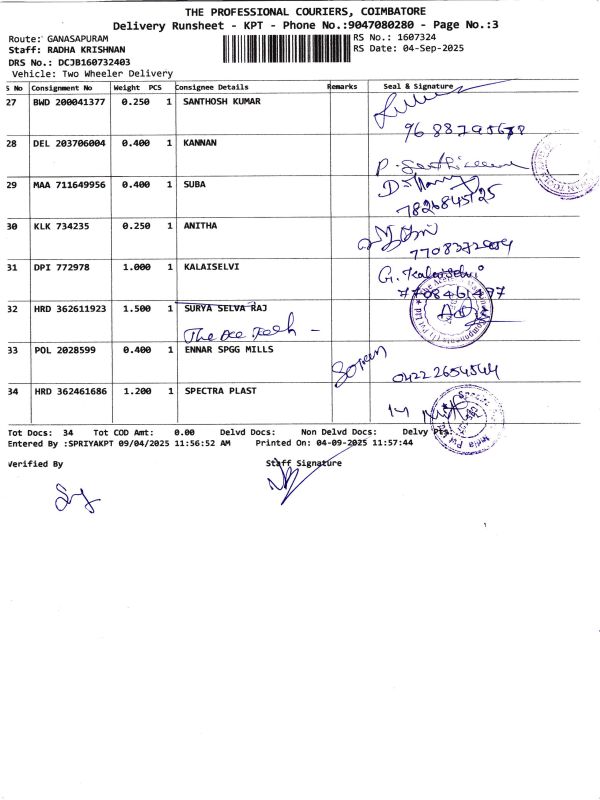 THE PROFESSIONAL COURIERS, COIMBATORE
Delivery Runsheet - KPT - Phone No.:9047080280 - Page No.:3
Route: GANASAPURAM RS No.: 1607324
Staff: RADHA KRISHNAN RS Date: 04-Sep-2025
DRS No.: DCJB160732403
Vehicle: Two Wheeler Delivery
S No Consignment No Weight PCS Consignee Details Remarks Seal & Signature
27 BWD 200041377 0.250 1 SANTHOSH KUMAR
28 DEL 203706004 0.400 1 KANNAN
29 MAA 711649956 0.400 1 SUBA
7826845125
30 KLK 734235 0.250 1 ANITHA
31 DPI 772978 1.000 1 KALAISELVI G. Kalaiselvi
7708461477
32 HRD 362611923 1.500 1 SURYA SELVA RAJ
The Ace
33 POL 2028599 0.400 1 ENNAR SPGG MILLS
0422 2654544
34 HRD 362461686 1.200 1 SPECTRA PLAST
Tot Docs: 34 Tot COD Amt: 0.00 Delvd Docs: Non Delvd Docs: Delvy Pts:
Entered By :SPRIYAKPT 09/04/2025 11:56:52 AM Printed On: 04-09-2025 11:57:44
Verified By Staff Signature